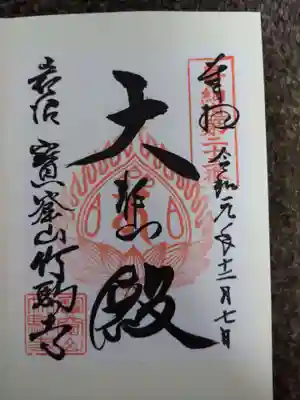 奉拝
令和元年十二月七日
大悲殿
岩沼 寶窟山竹駒寺